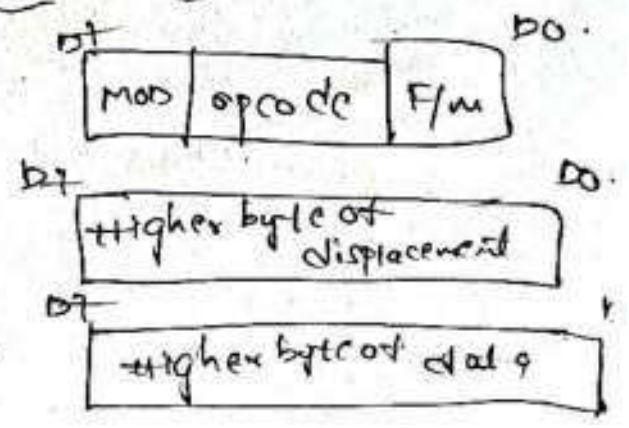 D7 D0.
MOD opcode F/m
D7 D0.
Higher byte of
displacement
D7
Higher byte of data